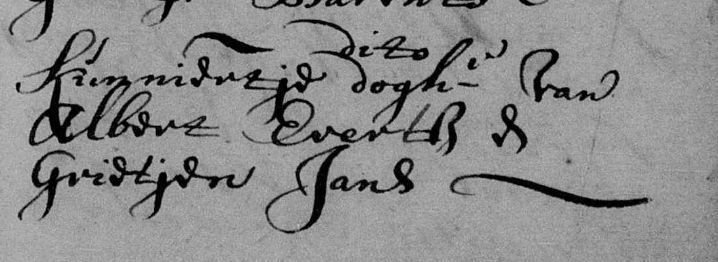 dito
Kunniertje dogh^r van
Albert Everts &
Grietjen Jans